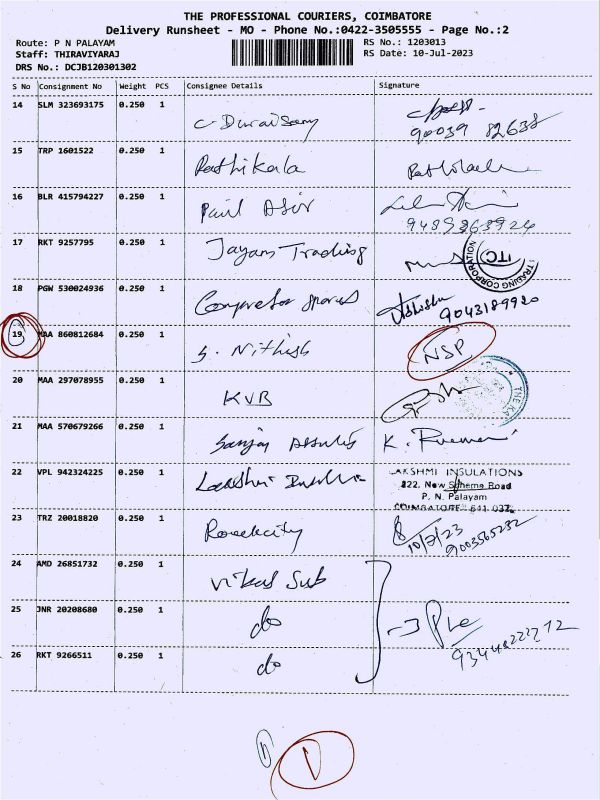 THE PROFESSIONAL COURIERS, COIMBATORE
Delivery Runsheet - MO - Phone No.:0422-3505555 - Page No.:2
Route: P N PALAYAM
Staff: THIRAVIYARAJ
DRS No.: DCJB120301302
RS No.: 1203013
RS Date: 10-Jul-2023
S No Consignment No Weight PCS Consignee Details Signature
14 SLM 323693175 0.250 1 C-Duraisamy
90039 82638
15 TRP 1601522 0.250 1 Rathikala
16 BLR 415794227 0.250 1 Paul Asir
9489863924
17 RKT 9257795 0.250 1 Jayam Trading
ITC
TRADING CORPORATION
18 PGW 530024936 0.250 1 Compretor spares
9043189920
19 MAA 860812684 0.250 1 S. Nithish NSP
20 MAA 297078955 0.250 1 KVB
21 MAA 570679266 0.250 1 Sanjay K.
22 VPL 942324225 0.250 1 Lakshmi
LAKSHMI INSULATIONS
222, New Scheme Road
P. N. Palayam
COIMBATORE - 641 037.
23 TRZ 20018820 0.250 1
10/7/23
9003565232
24 AMD 26851732 0.250 1 Vikas Sub
25 JNR 20208680 0.250 1 do
26 RKT 9266511 0.250 1 do
1